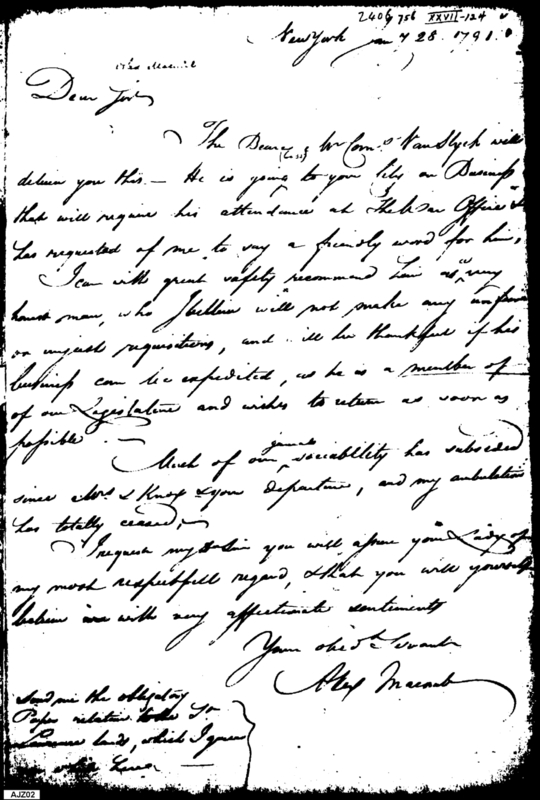 2406 756 XXVII-124
New York Jany 28. 1791.
Alex Macomb
Dear Sir
The Bearer Mr Corns. Van Slyck will
(Esqr)
deliver you this — He is going to your City on Business
that will require his attendance at The War Office &
has requested of me to say a friendly word for him,
I can with great safety recommend him as a very
honest man, who I believe will not make any
or unjust requisitions, and will be thankful if his
business can be expedited, as he is a member of
of our Legislature and wishes to return as soon as
possible. —
Much of our sociability has subsided
since Mrs. Knox & your departure, and my ambulations
has totally ceased, —
I request my Dr Sir you will assure your Lady of
my most respectfull regard, & that you will yourself
believe me with very affectionate sentiments
Your obedt. Servant
Alex Macomb
Send me the obligatory
Paper relative to the
lands, which I gave
AJZ02